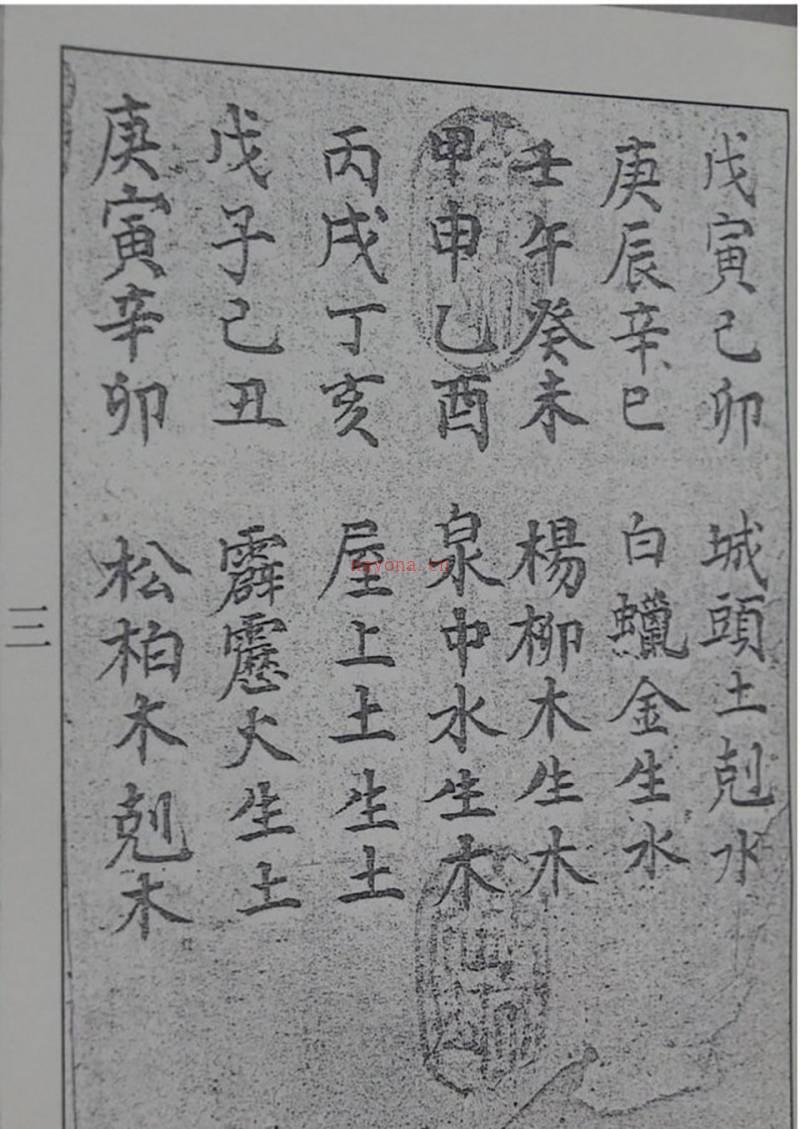 戊寅己卯 城頭土剋水
庚辰辛巳 白蠟金生水
壬午癸未 楊柳木生木
甲申乙酉 泉中水生木
丙戌丁亥 屋上土生土
戊子己丑 霹靂火生土
庚寅辛卯 松柏木剋木
三
nayona.cn